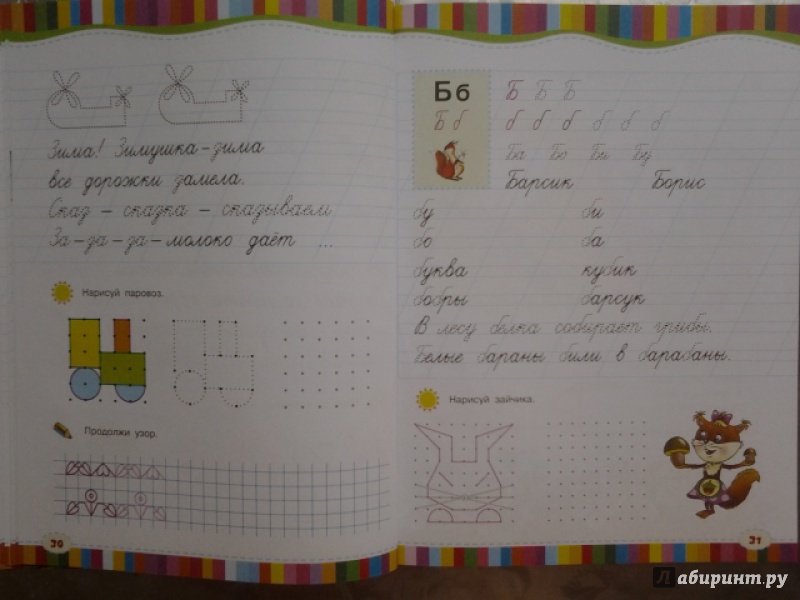 Зима! Зимушка – зима
все дорожки замела.
Сказ – сказка – сказываем
За – за – за – молоко даёт ...
Нарисуй паровоз.
Продолжи узор.
30
Бб Б Б Б
Б б б б б б б б
Ба Бо Би Бу
Барсик Борис
бу би
бо ба
буква кубик
бобры барсук
В лесу белка собирает грибы.
Белые бараны били в барабаны.
Нарисуй зайчика.
31
Лабиринт.ру